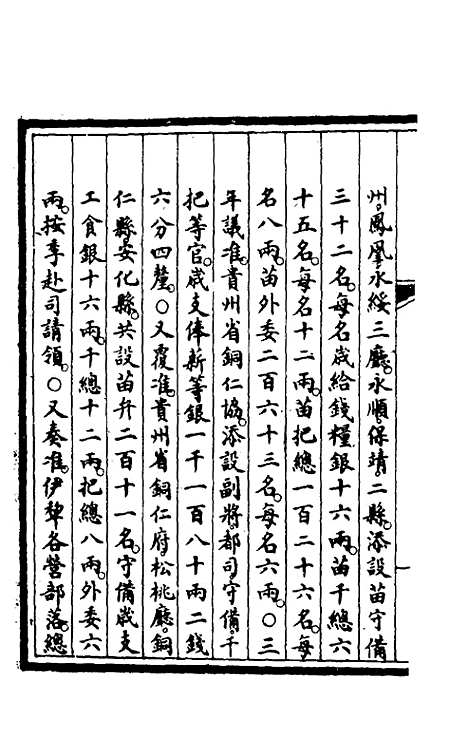 州。鳳凰永綏三廳。永順。保靖。二縣。添設苗守備
三十二名。每名歲給錢糧銀十六兩。苗千總六
十五名。每名十二兩。苗把總一百二十六名。每
名八兩。苗外委二百六十三名。每名六兩。○三
年議准。貴州省銅仁協。添設副將。都司。守備。千
把等官。歲支俸薪等銀一千一百八十兩二錢
六分四釐。○又覆准。貴州省銅仁府松桃廳。銅
仁縣。安化縣。共設苗弁二百十一名。守備歲支
工食銀十六兩。千總十二兩。把總八兩。外委六
兩。按季赴司請領。○又奏准。伊犂各營部落。總